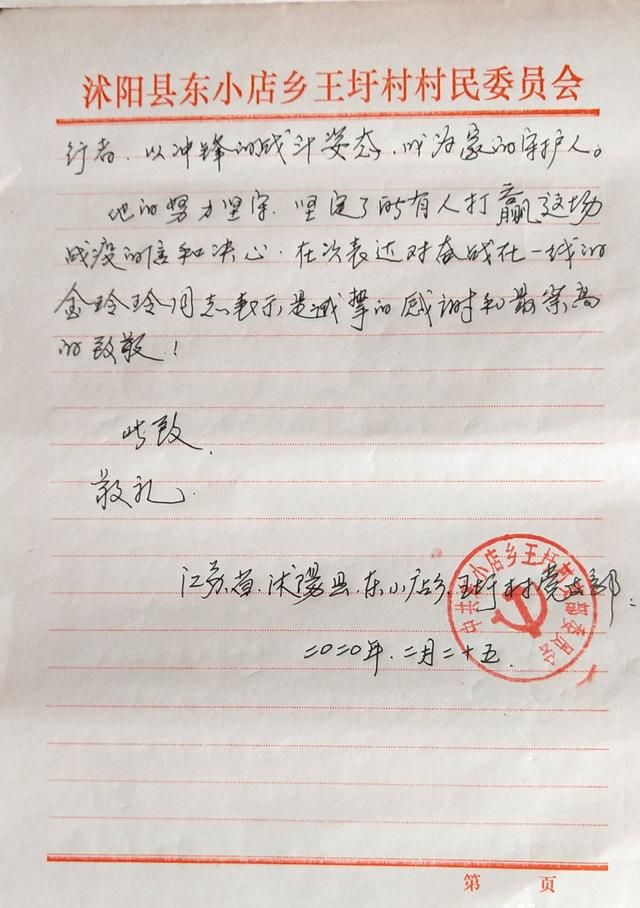 沭阳县东小店乡王圩村村民委员会
行者、以冲锋的战斗姿态、成为家的守护人。
他的努力坚守、坚定了所有人打赢这场
战疫的信和决心。在次表达对奋战在一线的
金玲玲同志表示是诚挚的感谢和最崇高
的致敬！
此致、
敬礼
江苏省、沭阳县、东小店乡、王圩村党支部
二〇二〇年、二月二十五
中共东小店乡王圩村支部委员会
第 页